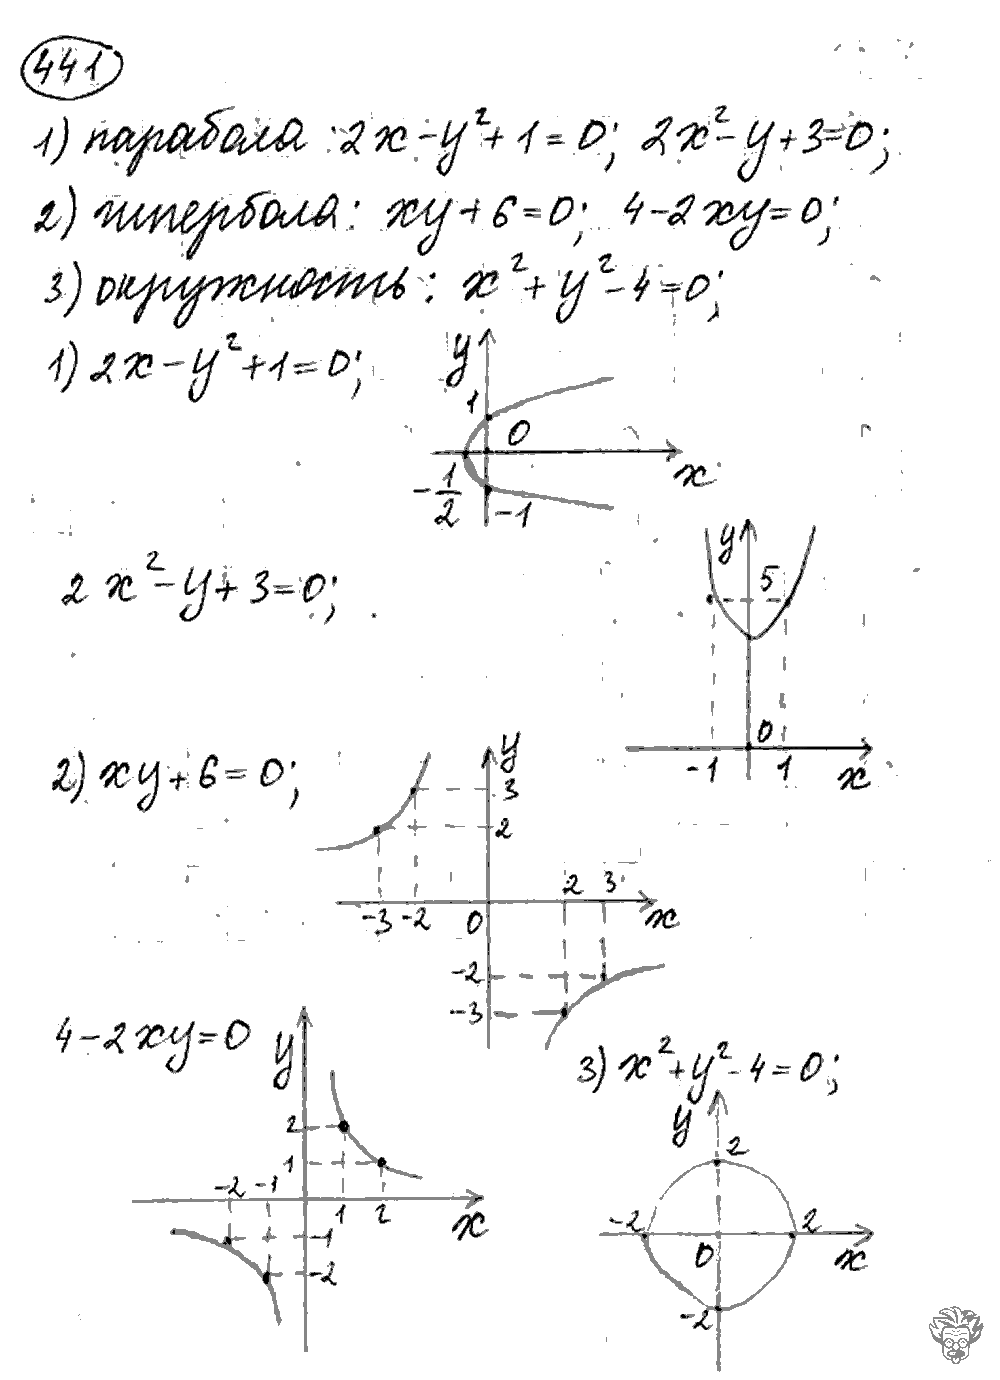 441
1) парабола : 2x - y² + 1 = 0; 2x² - y + 3 = 0;
2) гипербола: xy + 6 = 0; 4 - 2xy = 0;
3) окружность: x² + y² - 4 = 0;
1) 2x - y² + 1 = 0;
y
1
0
x
-1/2
-1
2x² - y + 3 = 0;
y
5
0
-1 1 x
2) xy + 6 = 0;
y
3
2
2 3
-3 -2 0 x
-2
-3
4 - 2xy = 0
y
2
1
-2 -1
1 2 x
-1
-2
3) x² + y² - 4 = 0;
y
2
-2 2
0 x
-2